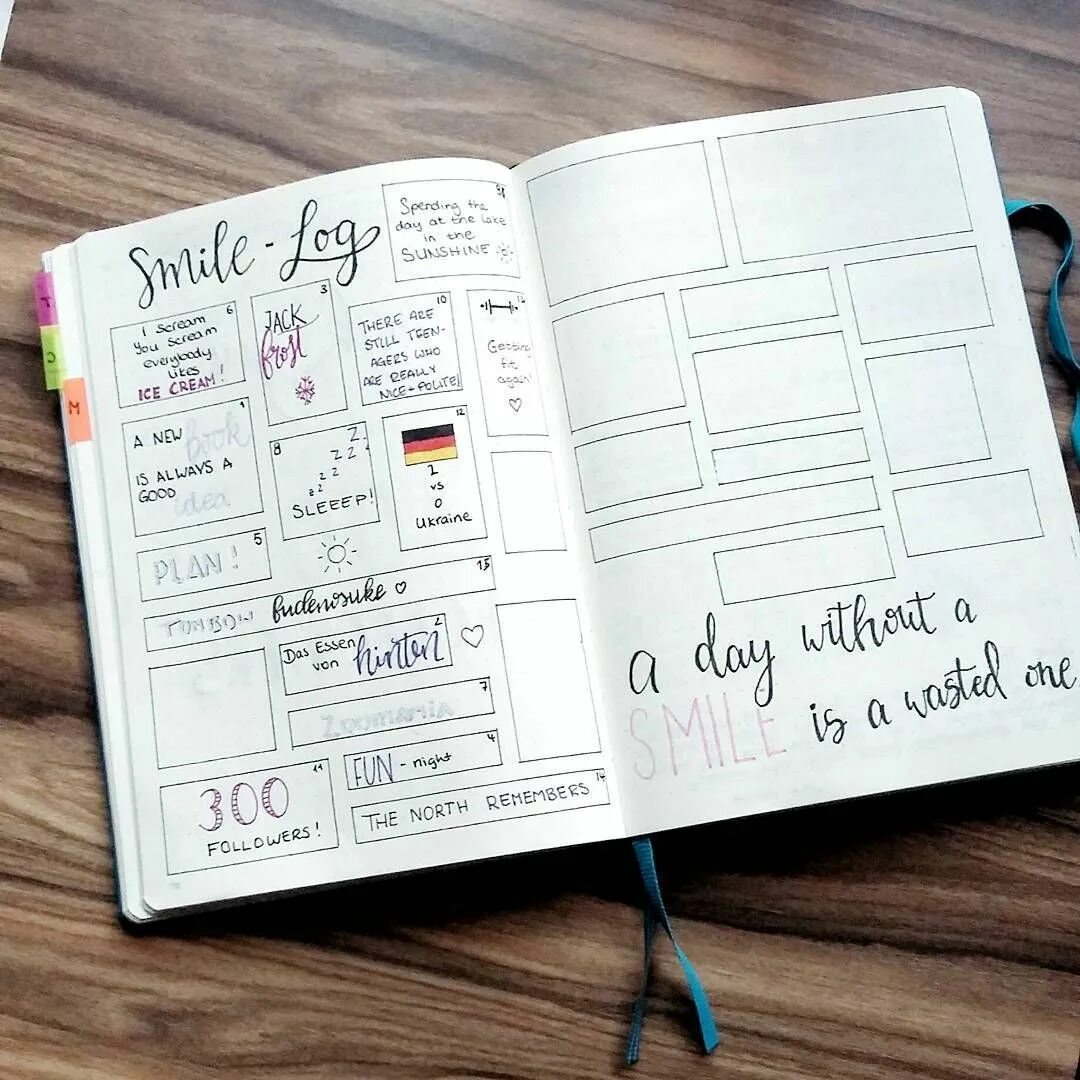 Smile - Log
Spending the
day at the lake
in the
SUNSHINE
6
I scream
You scream
everybody
likes
ICE CREAM!
3
JACK
frost
10
THERE ARE
STILL TEEN-
AGERS WHO
ARE REALLY
NICE + POLITE!
Getting
fit
again!
1
A NEW book
IS ALWAYS A
GOOD
idea
8
Z
Z Z
Z Z
Z Z
SLEEEP!
12
1
VS
0
Ukraine
5
PLAN!
15
TOMBOW fudenosuke
2
Das Essen
von hinten
7
Zoomania
4
FUN - night
11
300
FOLLOWERS!
14
THE NORTH REMEMBERS
T
J
M
a day without a
SMILE is a wasted one